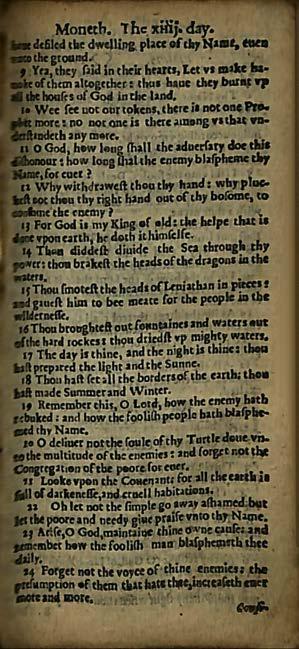 Moneth. The xiiij. day.
haue defiled the dwelling place of thy Name, euen
vnto the ground.
9 Yea, they said in their hearts, Let vs make ha-
uoke of them altogether: thus haue they burnt vp
all the houses of God in the land.
10 Wee see not our tokens, there is not one Pro-
phet more: no not one is there among vs that vn-
derstandeth any more.
11 O God, how long shall the aduersary doe this
dishonour: how long shal the enemy blaspheme thy
Name, for euer?
12 Why withdrawest thou thy hand: why pluc-
kest not thou thy right hand out of thy bosome, to
consume the enemy?
13 For God is my King of old: the helpe that is
done vpon earth, he doth it himselfe.
14 Thou diddest diuide the Sea through thy
power: thou brakest the heads of the dragons in the
waters.
15 Thou smotest the heads of Leuiathan in pieces:
and gauest him to bee meate for the people in the
wildernesse.
16 Thou broughtest out fountaines and waters out
of the hard rockes: thou driedst vp mighty waters.
17 The day is thine, and the night is thine: thou
hast prepared the light and the Sunne.
18 Thou hast set all the borders of the earth: thou
hast made Summer and Winter.
19 Remember this, O Lord, how the enemy hath
rebuked: and how the foolish people hath blasphe-
med thy Name.
20 O deliuer not the soule of thy Turtle doue vn-
to the multitude of the enemies: and forget not the
Congregation of the poore for euer.
21 Looke vpon the Couenant: for all the earth is
full of darkenesse, and cruell habitations.
22 Oh let not the simple go away ashamed: but
let the poore and needy giue praise vnto thy Name.
23 Arise, O God, maintaine thine owne cause: and
remember how the foolish man blasphemeth thee
daily.
24 Forget not the voyce of thine enemies: the
presumption of them that hate thee, increaseth euer
more and more.